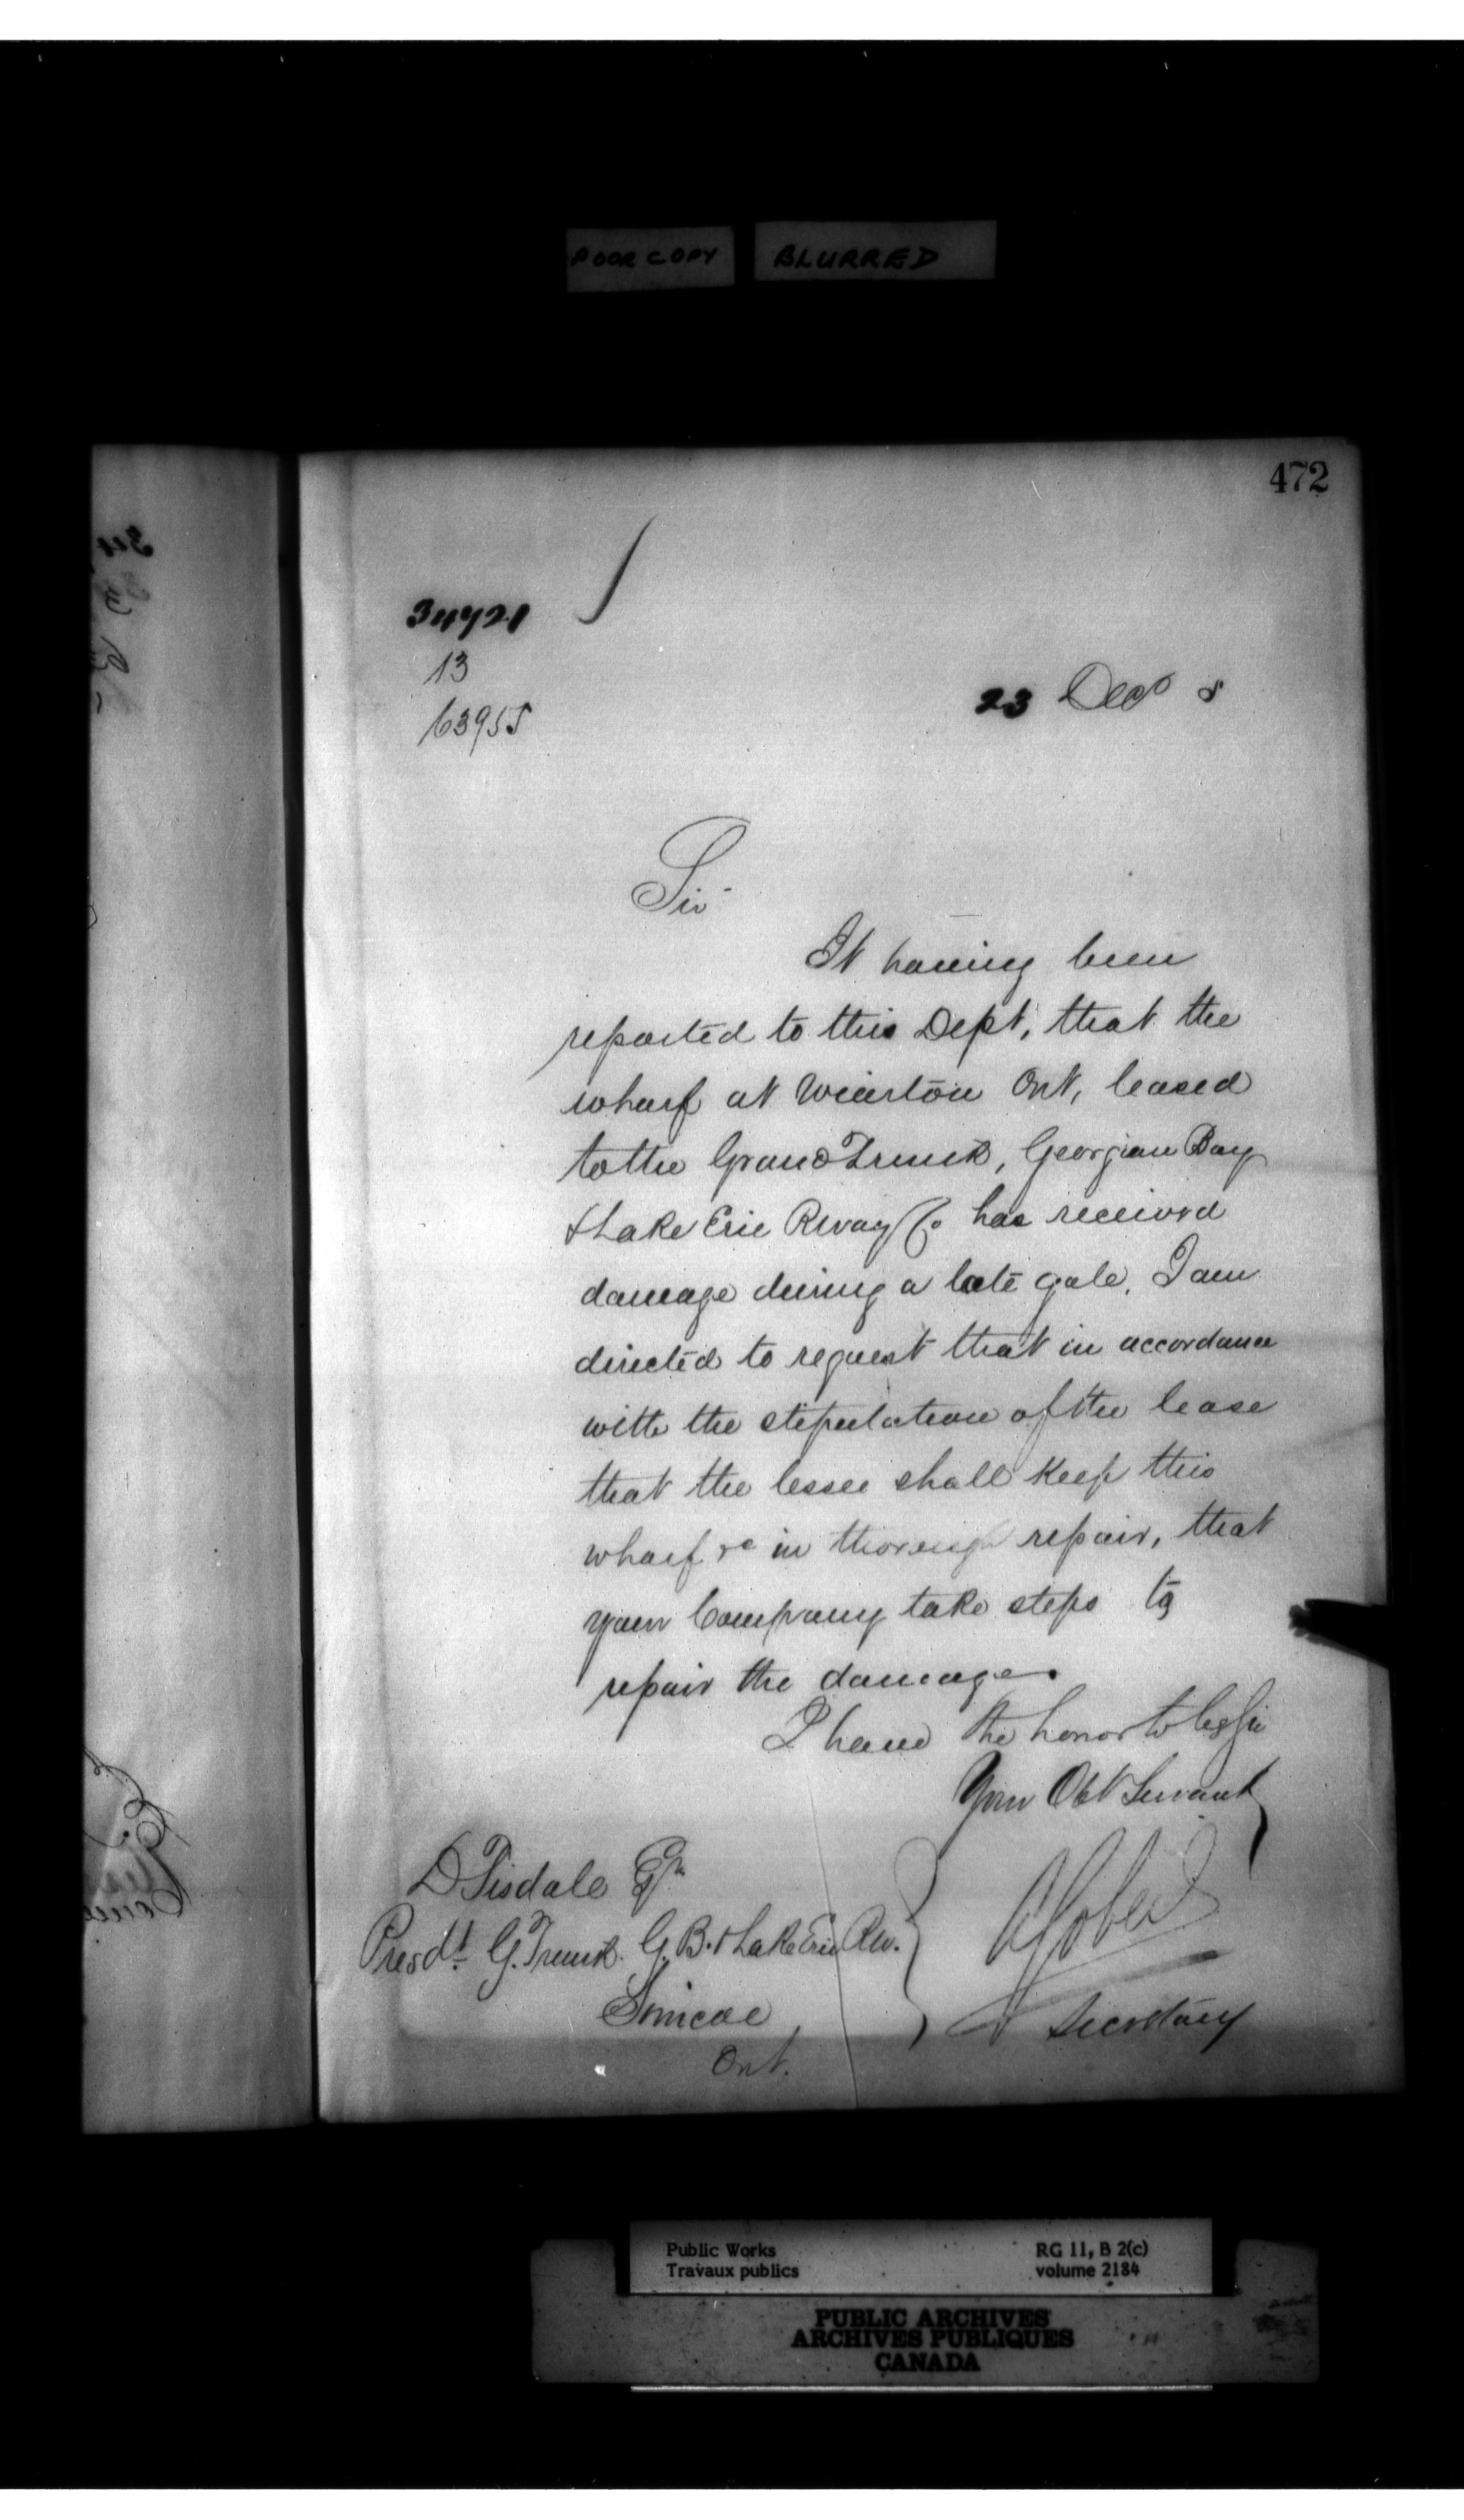 POOR COPY BLURRED
472
34721
13
63955
23 Decr 5
Sir
It having been
reported to this Dept, that the
wharf at Wiarton Ont, leased
to the Grand Trunk, Georgian Bay
& Lake Erie Rway Co has received
damage during a late gale, I am
directed to request that in accordance
with the stipulation of the lease
that the lessee shall keep this
wharf &c in thorough repair, that
your Company take steps to
repair the damage.
I have the honor to be Sir
Your Obt Servant
D Tisdale Esqr
Presdt. G. Trunk. G. B. & Lake Erie Rw.
Simcoe
Ont.
A Gobeil
Secretary
Public Works
Travaux publics
RG 11, B 2(c)
volume 2184
PUBLIC ARCHIVES
ARCHIVES PUBLIQUES
CANADA